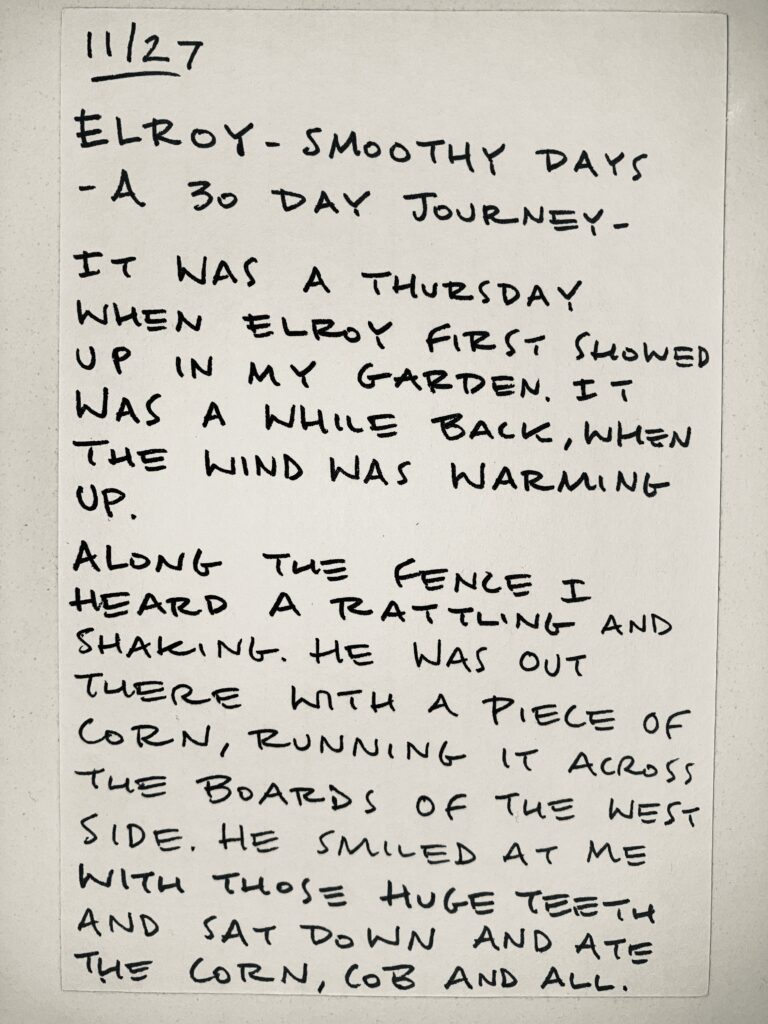 11/27
ELROY - SMOOTHY DAYS
- A 30 DAY JOURNEY -
IT WAS A THURSDAY
WHEN ELROY FIRST SHOWED
UP IN MY GARDEN. IT
WAS A WHILE BACK, WHEN
THE WIND WAS WARMING
UP.
ALONG THE FENCE I
HEARD A RATTLING AND
SHAKING. HE WAS OUT
THERE WITH A PIECE OF
CORN, RUNNING IT ACROSS
THE BOARDS OF THE WEST
SIDE. HE SMILED AT ME
WITH THOSE HUGE TEETH
AND SAT DOWN AND ATE
THE CORN, COB AND ALL.